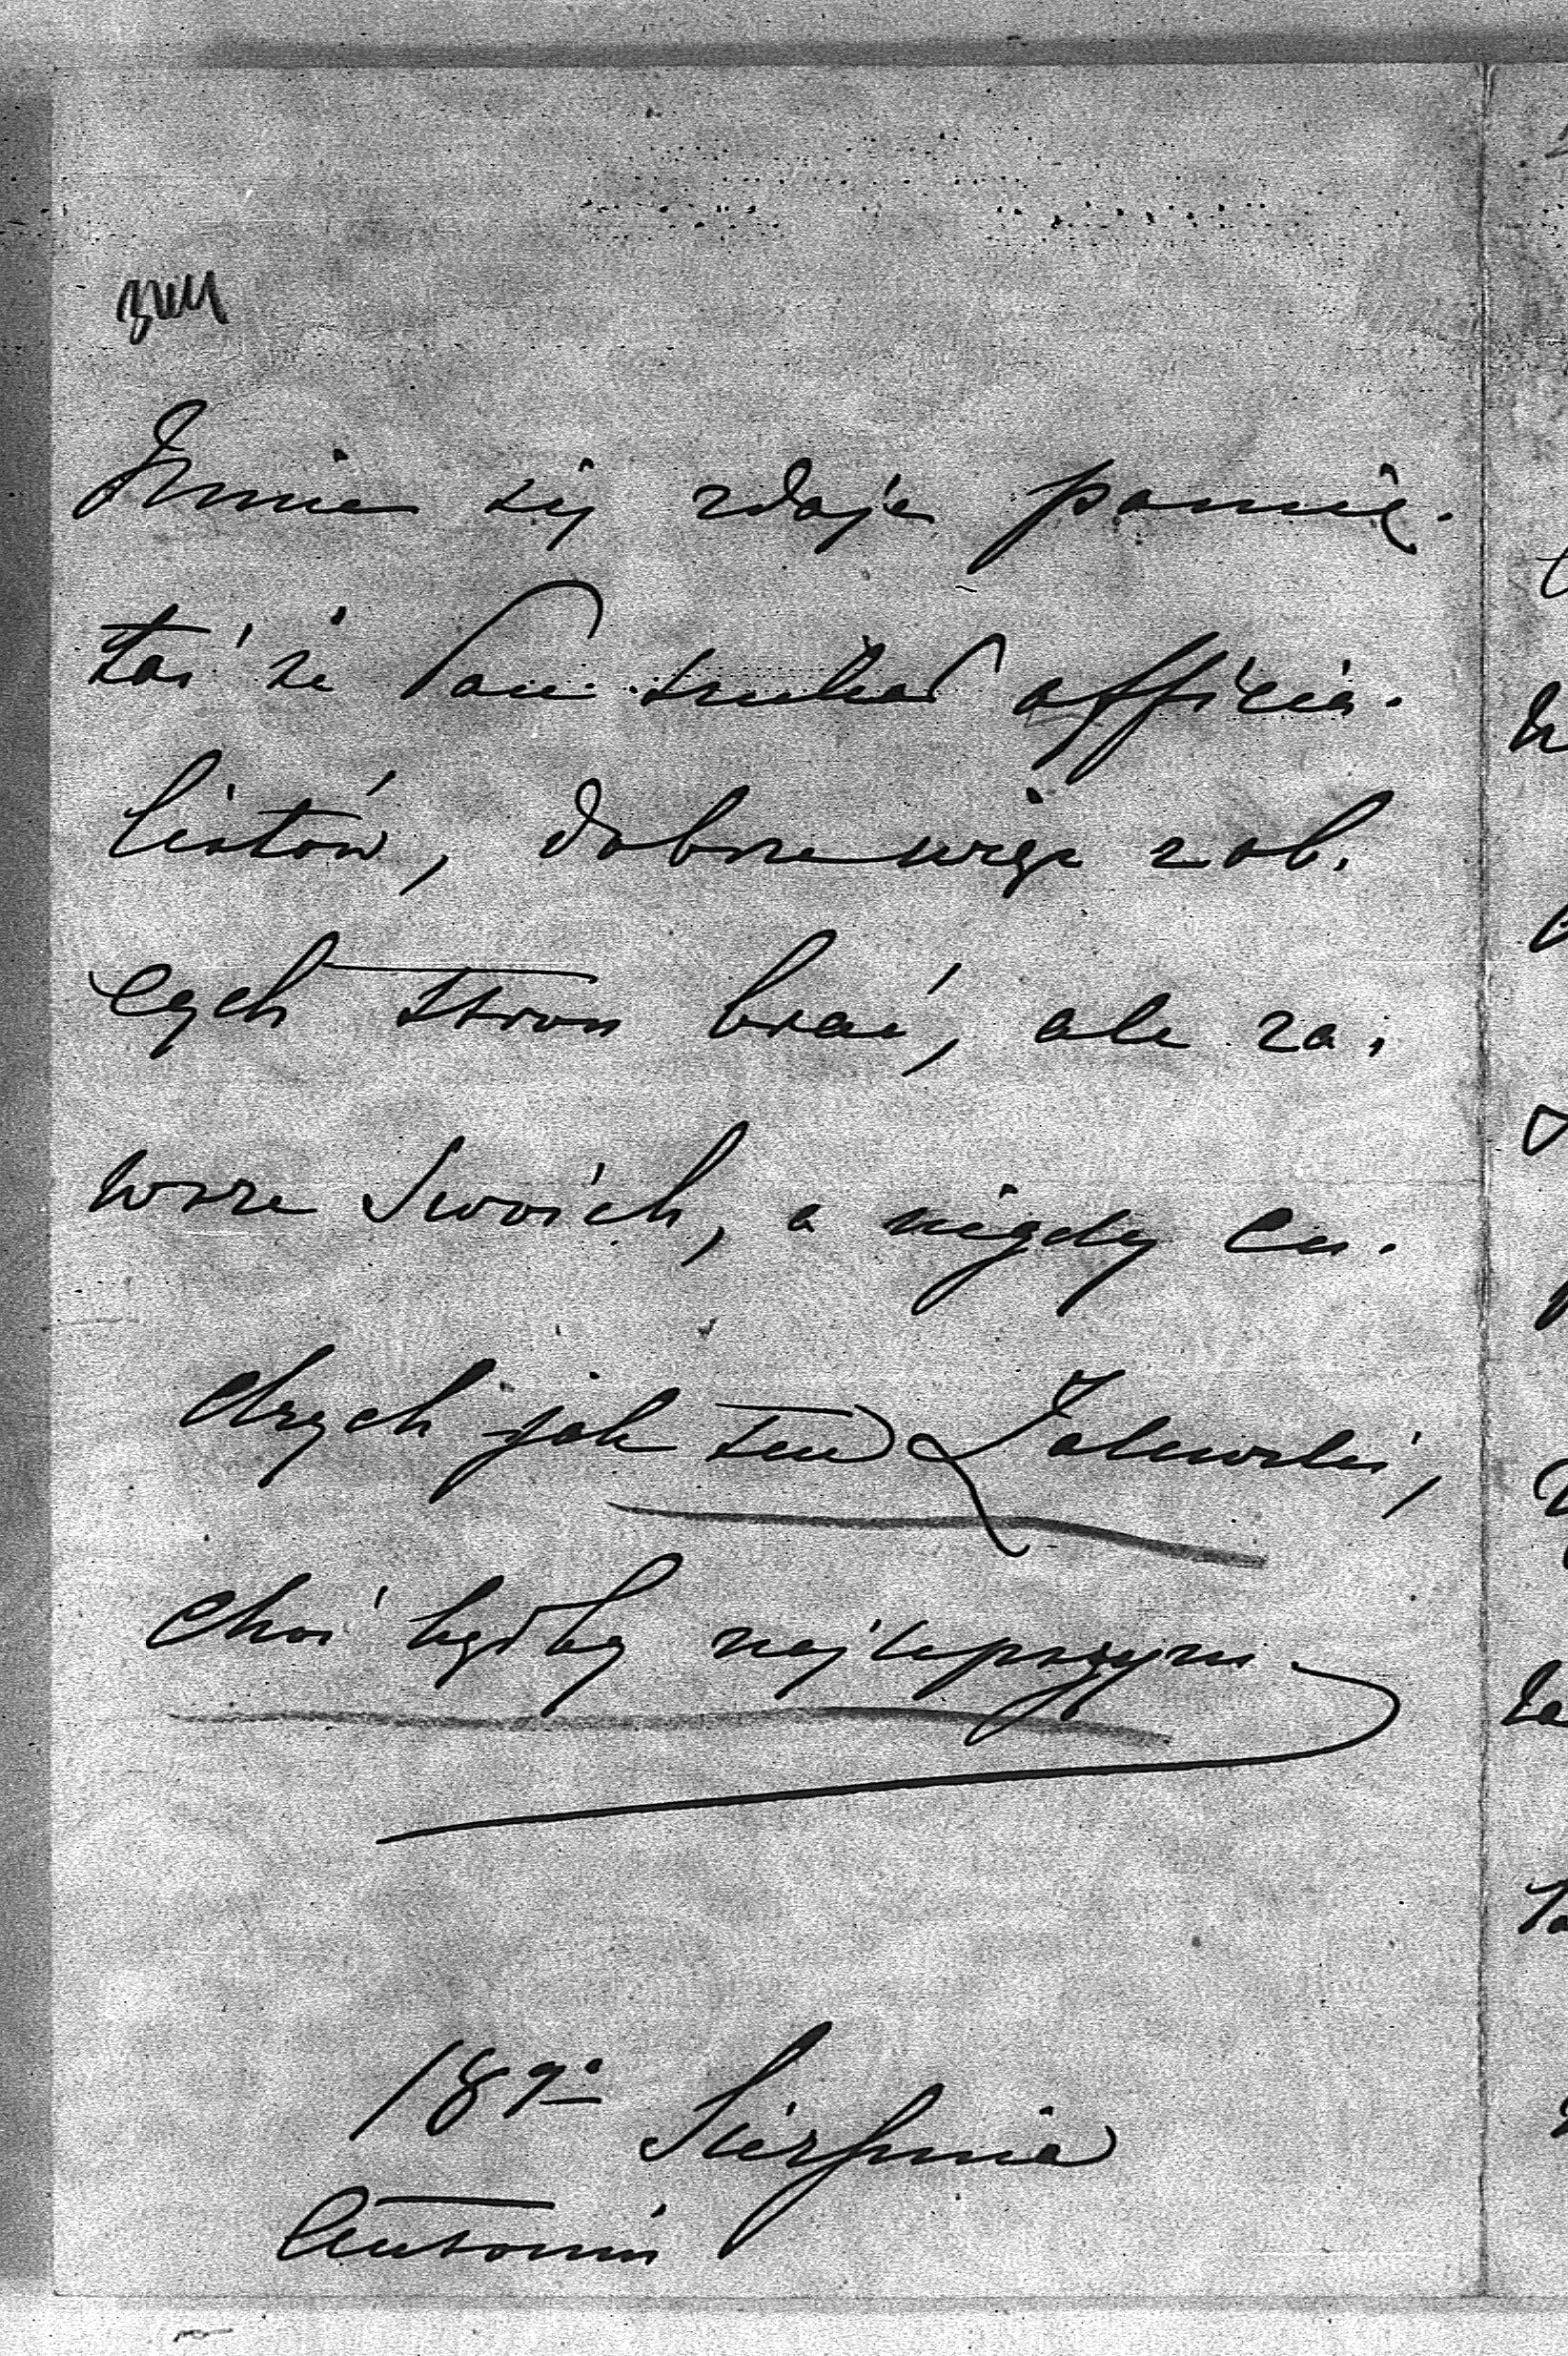 Mnie się zdaje pamię-
tać że Pan szukał officia-
listów, dobrze więc z ob-
cych stron brać, ale za-
wsze swoich, a nigdy cu-
dzych jak ten Zalewski,
choć byłby najlepszym
189 Sierpnia
Antonin